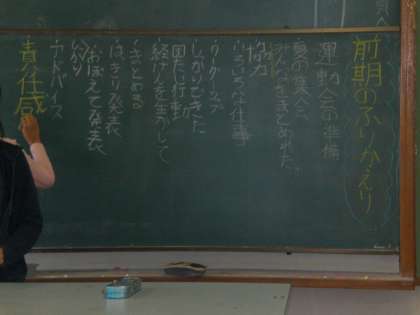 前期のふりかえり
運動会の準備
夏の集会
みんなをまとめれた。
協力
いろいろな仕事
リーダーシップ
しっかりできた
困た行動が
経けんを生かして
・まとめる
・はきり発表
・おぼえて発表
アドバイス
責任感